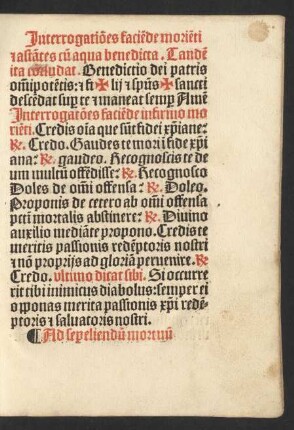 Interrogatiões faciẽde moriẽti
⁊ astãtes cũ aqua benedicta. Tandẽ
ita cõcludat. Benedictio dei patris
om̃ipotẽtis: ⁊ fi✠lij ⁊ sp̃us✠sancti
descẽdat sup te ⁊ maneat semp Amẽ
Interrogatões faciẽde infirmo mo
riẽti. Credis oĩa que sũt fidei xp̃iane:
℟. Credo. Gaudes te mori ĩ fide xp̃i
ana: ℟. gaudeo. Recognoscis te de
um multũ offẽdisse: ℟. Recognosco
Doles de om̃i offensa: ℟. Doleo.
Proponis de cetero ab om̃i offensa
pcti mortalis abstinere: ℟. Diuino
auxilio mediãte propono. Credis te
meritis passionis redẽptoris nostri
⁊ nõ proprijs ad gloriã peruenire. ℟
Credo. ultimo dicat sibi. Si occurre
rit tibi inimicus diabolus: semper ei
opponas merita passionis xp̃i redẽ
ptoris ⁊ saluatoris nostri.
¶ Ad sepeliendũ mortuũ